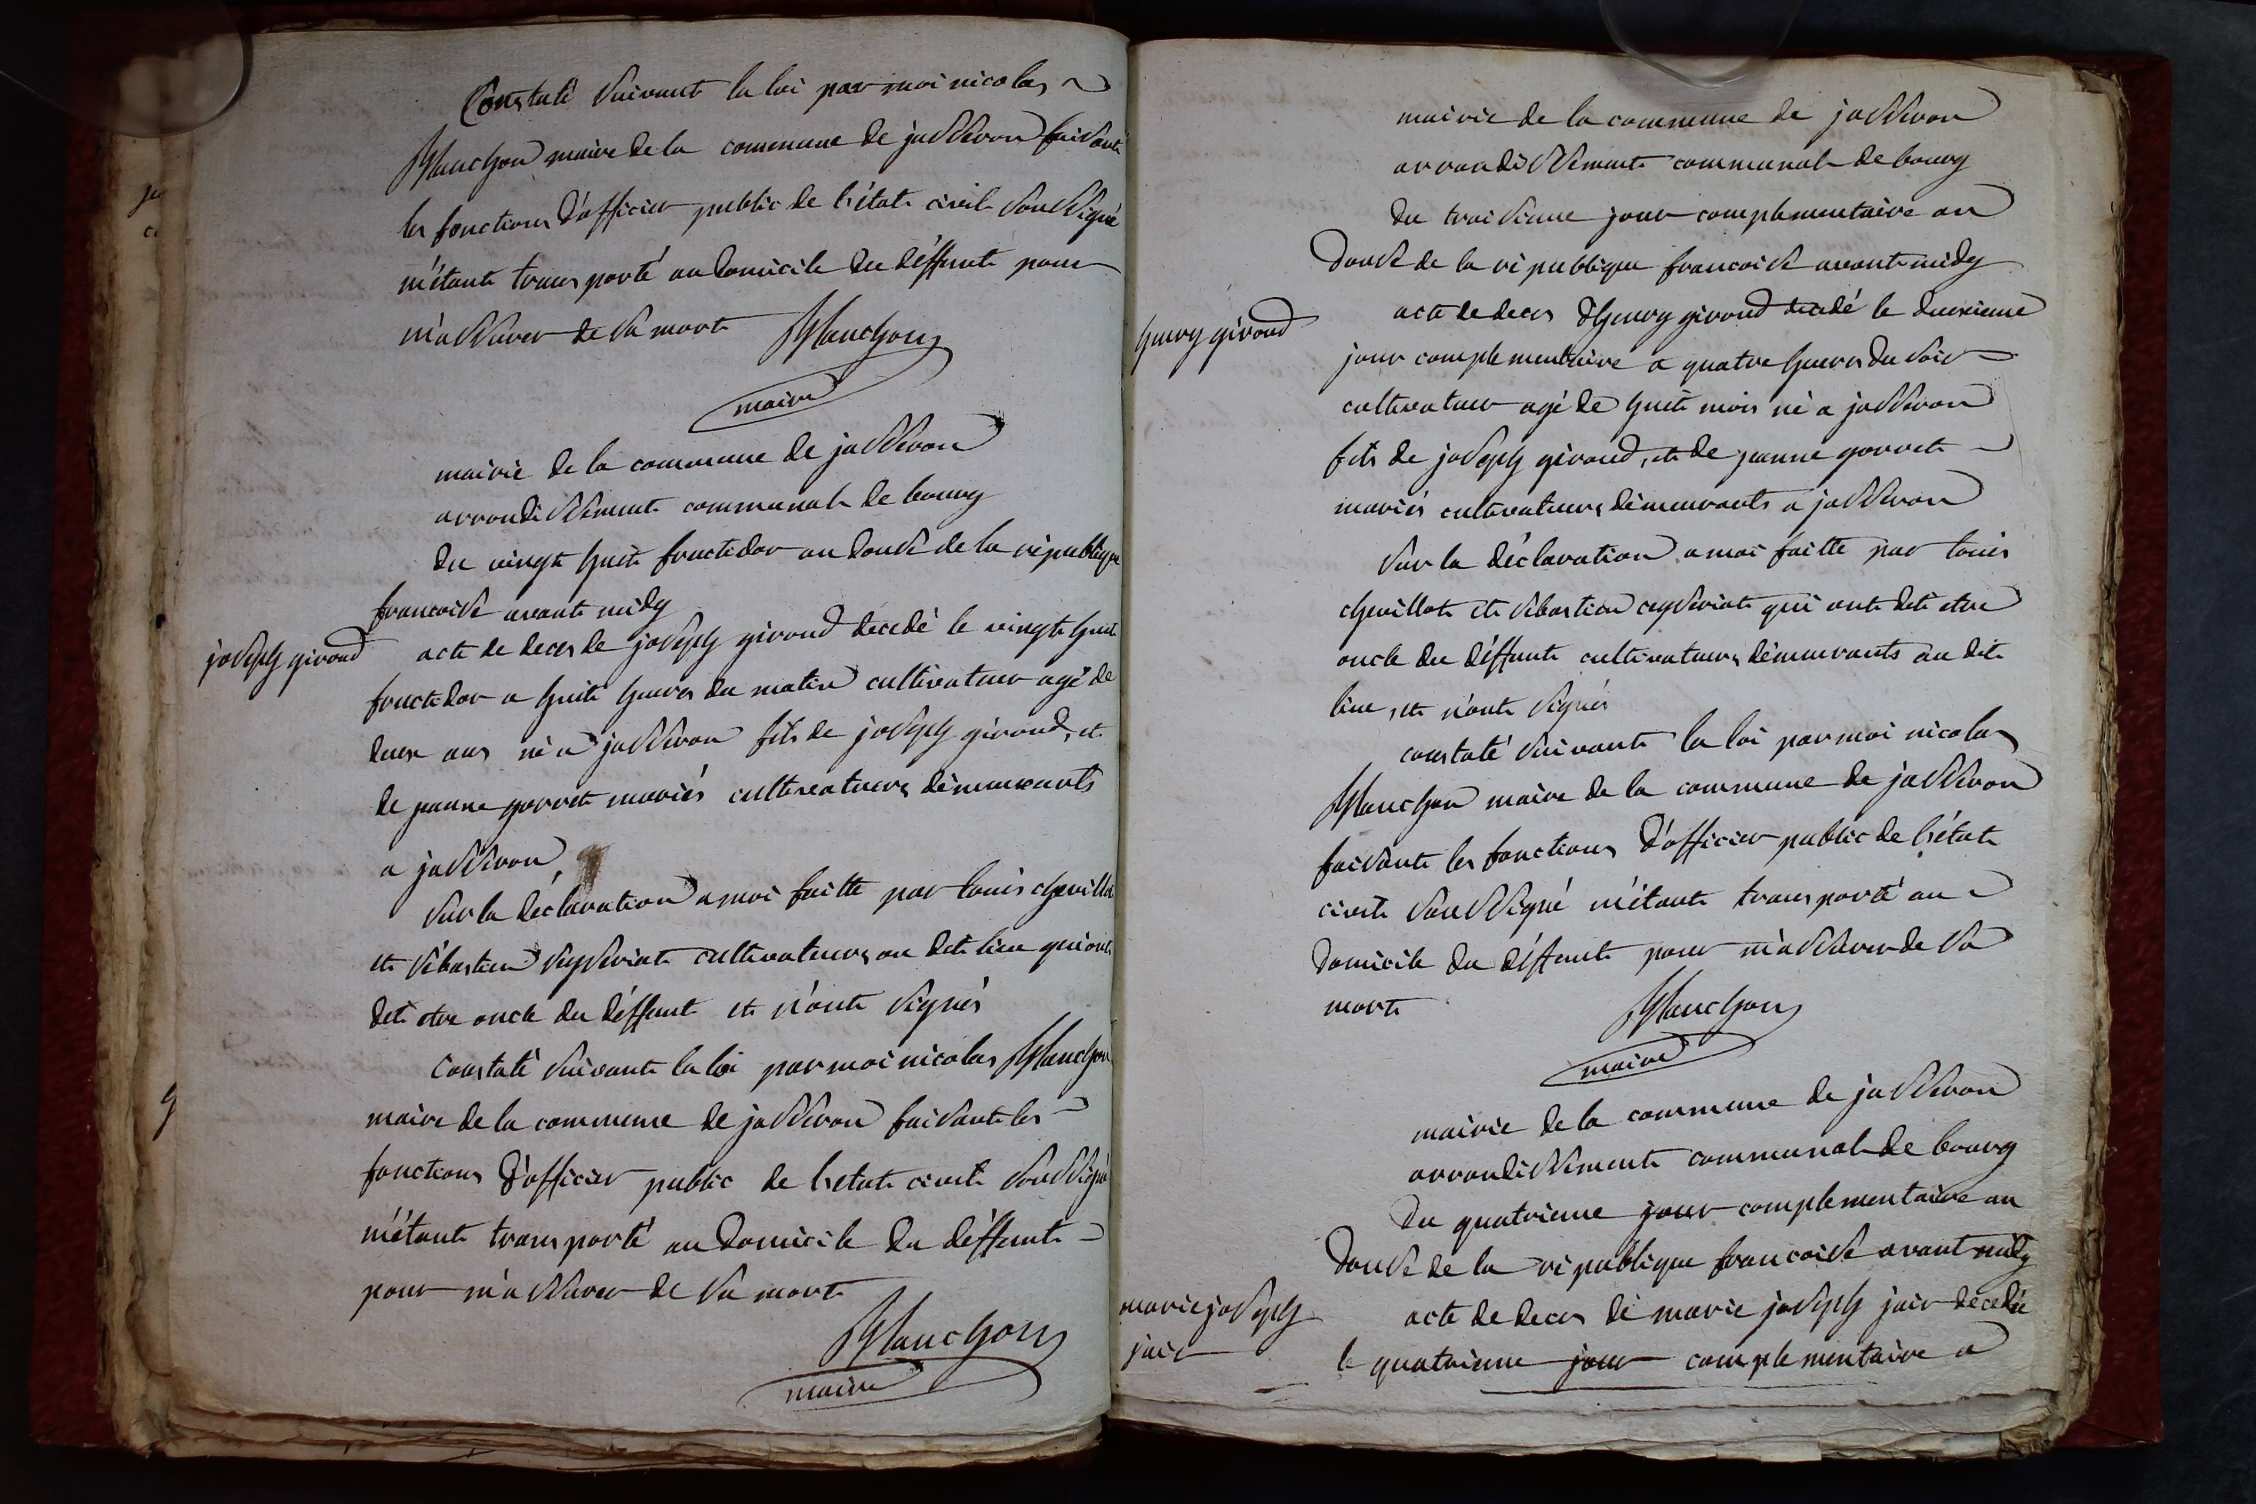 Constaté suivant la loi par moi nicolas
Planchon maire de la commune de jasseron faisant
les fonctions d'officier public de l'état civil soussigné
m'étant transporté au domicile du déffunt pour
m'assurer de sa mort Planchon
maire
mairie de la commune de jasseron
arrondissement communal de bourg
du vingt huit fructidor an douse de la république
francoise avant midy
joseph giroud
acte de deces de joseph giroud decedé le vingt huit
fructidor a huit heures du matin cultivateur agé de
deux ans né a jasseron fils de joseph giroud, et
de jeanne gorret mariés cultivateurs démeurants
a jasseron,
sur la déclaration a moi faitte par louis chevillot
et sébastien seyseriat cultivateurs au dit lieu qui ont
dit etre oncle du déffunt et n'ont signés
Constaté suivant la loi par moi nicolas Planchon
maire de la commune de jasseron faisant les
fonctions d'officier public de l'etat civil soussigné
m'étant transporté au domicile du déffunt
pour m'assurer de sa mort
Planchon
maire
mairie de la commune de jasseron
arrondissement communal de bourg
du troisieme jour complementaire an
douse de la république francoise avant midy
henry giroud
acte de deces d'henry giroud decedé le deuxieme
jour complementaire a quatre heures du soir
cultivateur agé de huit mois né a jasseron
fils de joseph giroud, et de jeanne gorret
mariés cultivateurs démeurants a jasseron
sur la déclaration a moi faitte par louis
chevillot et sébastien ceyseriat qui ont dit etre
oncle du déffunt cultivateurs démeurants au dit
lieu, et n'ont signés
constaté suivant la loi par moi nicolas
Planchon maire de la commune de jasseron
faisant les fonctions d'officier public de l'état
civil soussigné m'étant transporté au
domicile du déffunt pour m'assurer de sa
mort
Planchon
maire
mairie de la commune de jasseron
arrondissement communal de bourg
du quatrieme jour complementaire an
douse de la république francoise avant midy
marie joseph
jair
acte de deces de marie joseph jair decedée
le quatrieme jour complementaire a